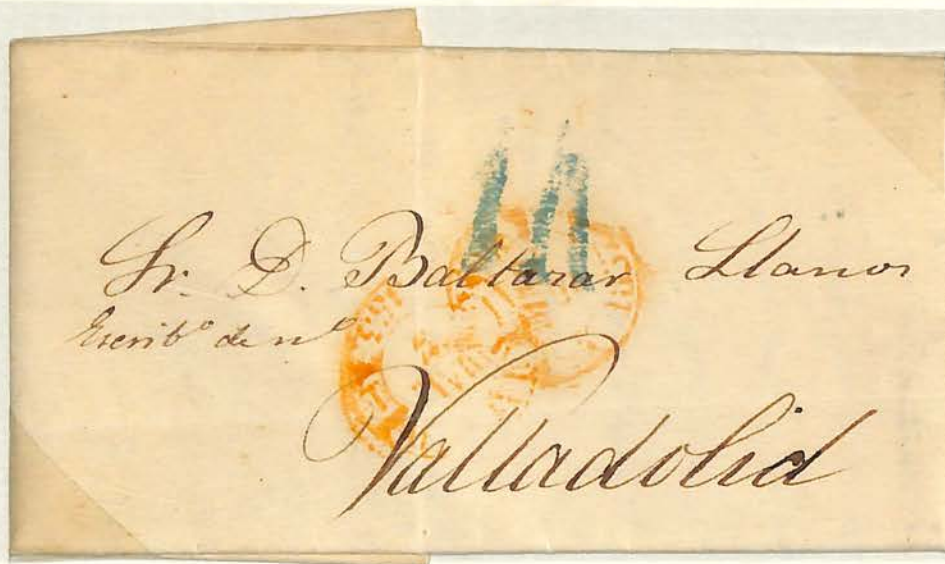 Sr. D. Baltazar Llanos
Escribº de nº
Valladolid